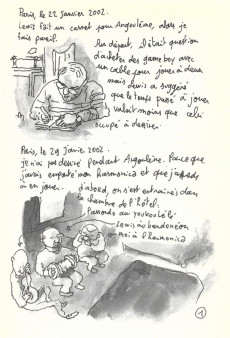 Paris, le 22 Janvier 2002.
Lewis fait un carnet pour Angoulême, alors je
fais pareil.
Au départ, il était question
d'acheter des game boy avec
un cable pour jouer à deux
mais Lewis a suggéré
que le temps passé à jouer
valait moins que celui
occupé à dessiner.
Paris, le 29 Janvier 2002.
je n'ai pas dessiné pendant Angoulême. Parce que
j'avais emporté mon harmonica et que j'apprends
à en jouer.
d'abord, on s'est entrainés dans
la chambre de l'hôtel.
au youkoulélé
Lewis au bandonéon
et moi à l'harmonica
1